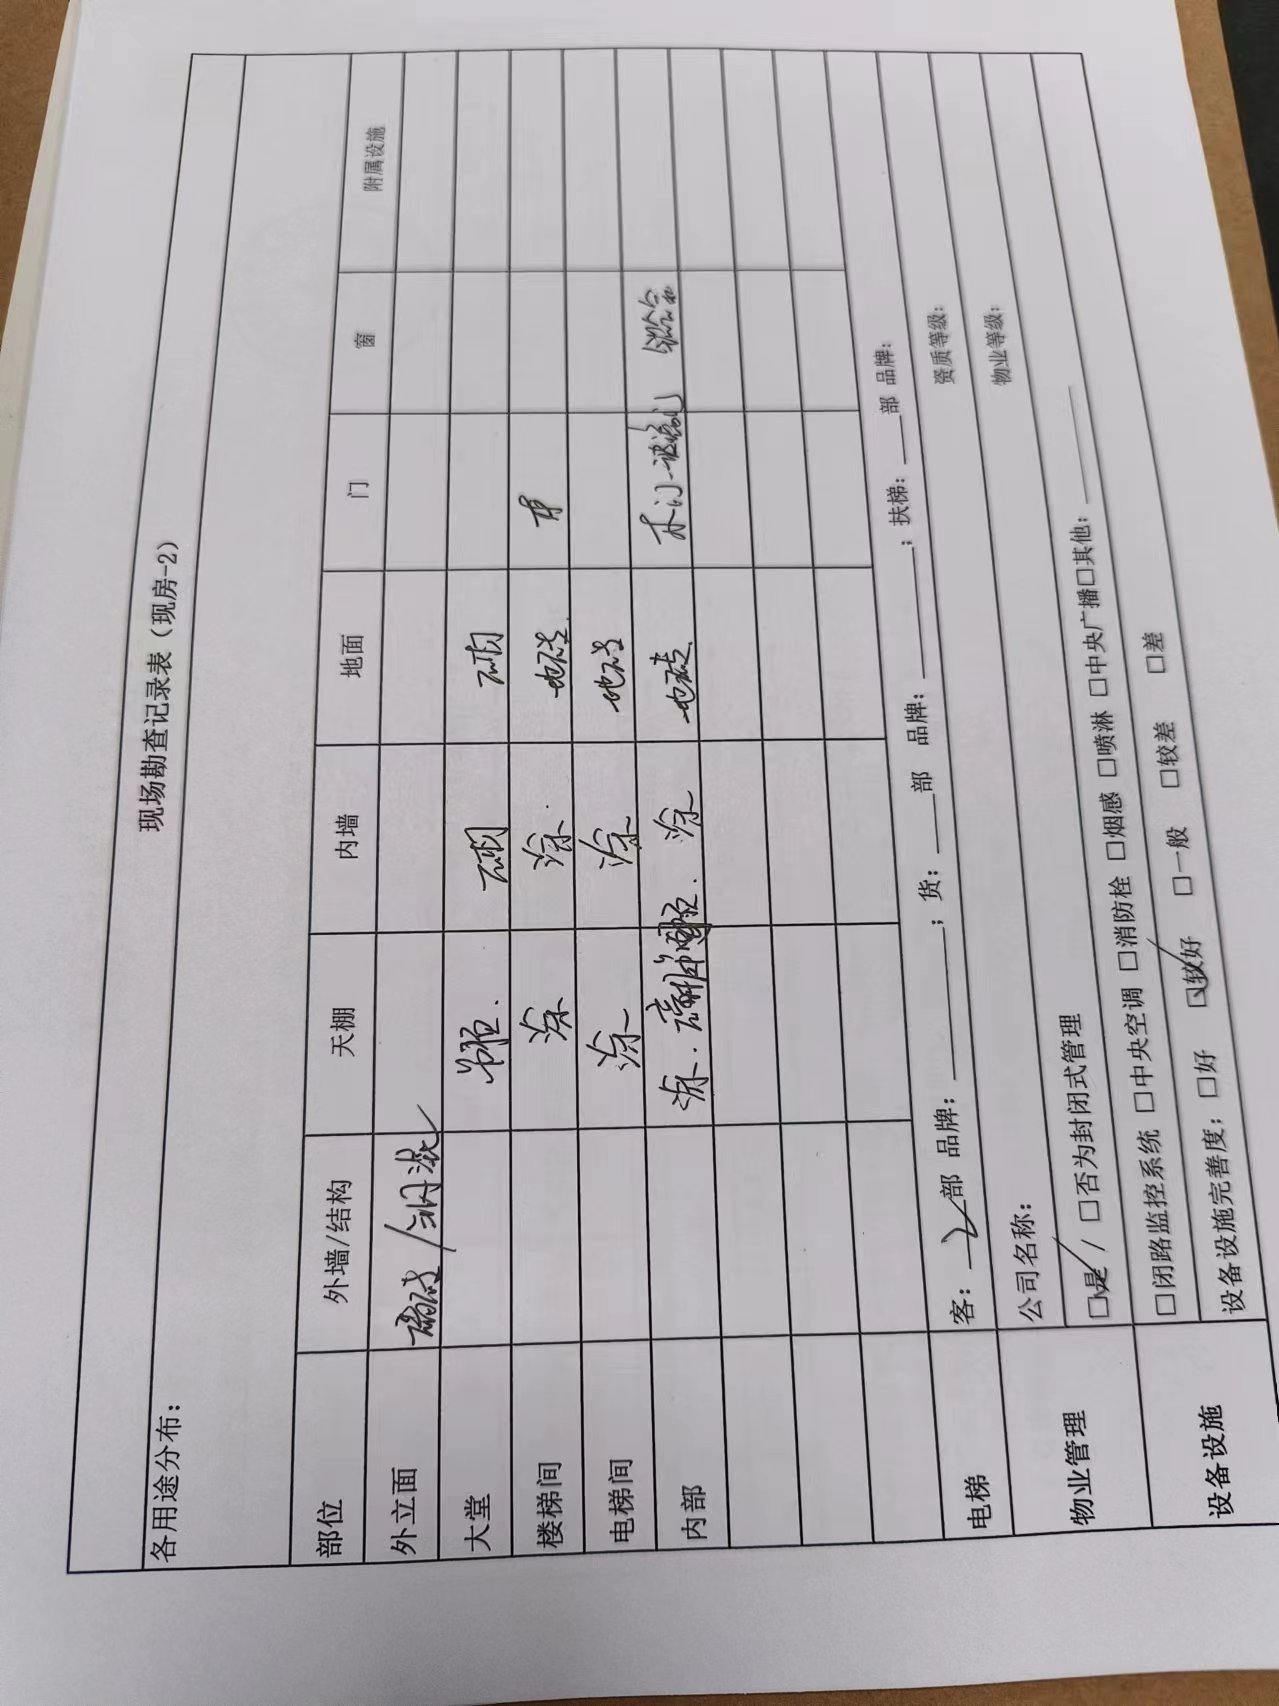 现场勘查记录表（现房-2）
各用途分布：
部位 外墙/结构 天棚 内墙 地面 门 窗 附属设施
外立面 瓷砖/钢混
大堂
楼梯间 涂 涂 地砖
电梯间 涂 涂 地砖
内部 涂. 涂 地砖 木门 玻璃门 铝合金
电梯 客：2部 品牌：______；货：___部 品牌：______；扶梯：___部 品牌：
物业管理 公司名称： 资质等级：
☑是/□否为封闭式管理 物业等级：
设备设施 □闭路监控系统 □中央空调 □消防栓 □烟感 □喷淋 □中央广播□其他：______
设备设施完善度：□好 ☑较好 □一般 □较差 □差